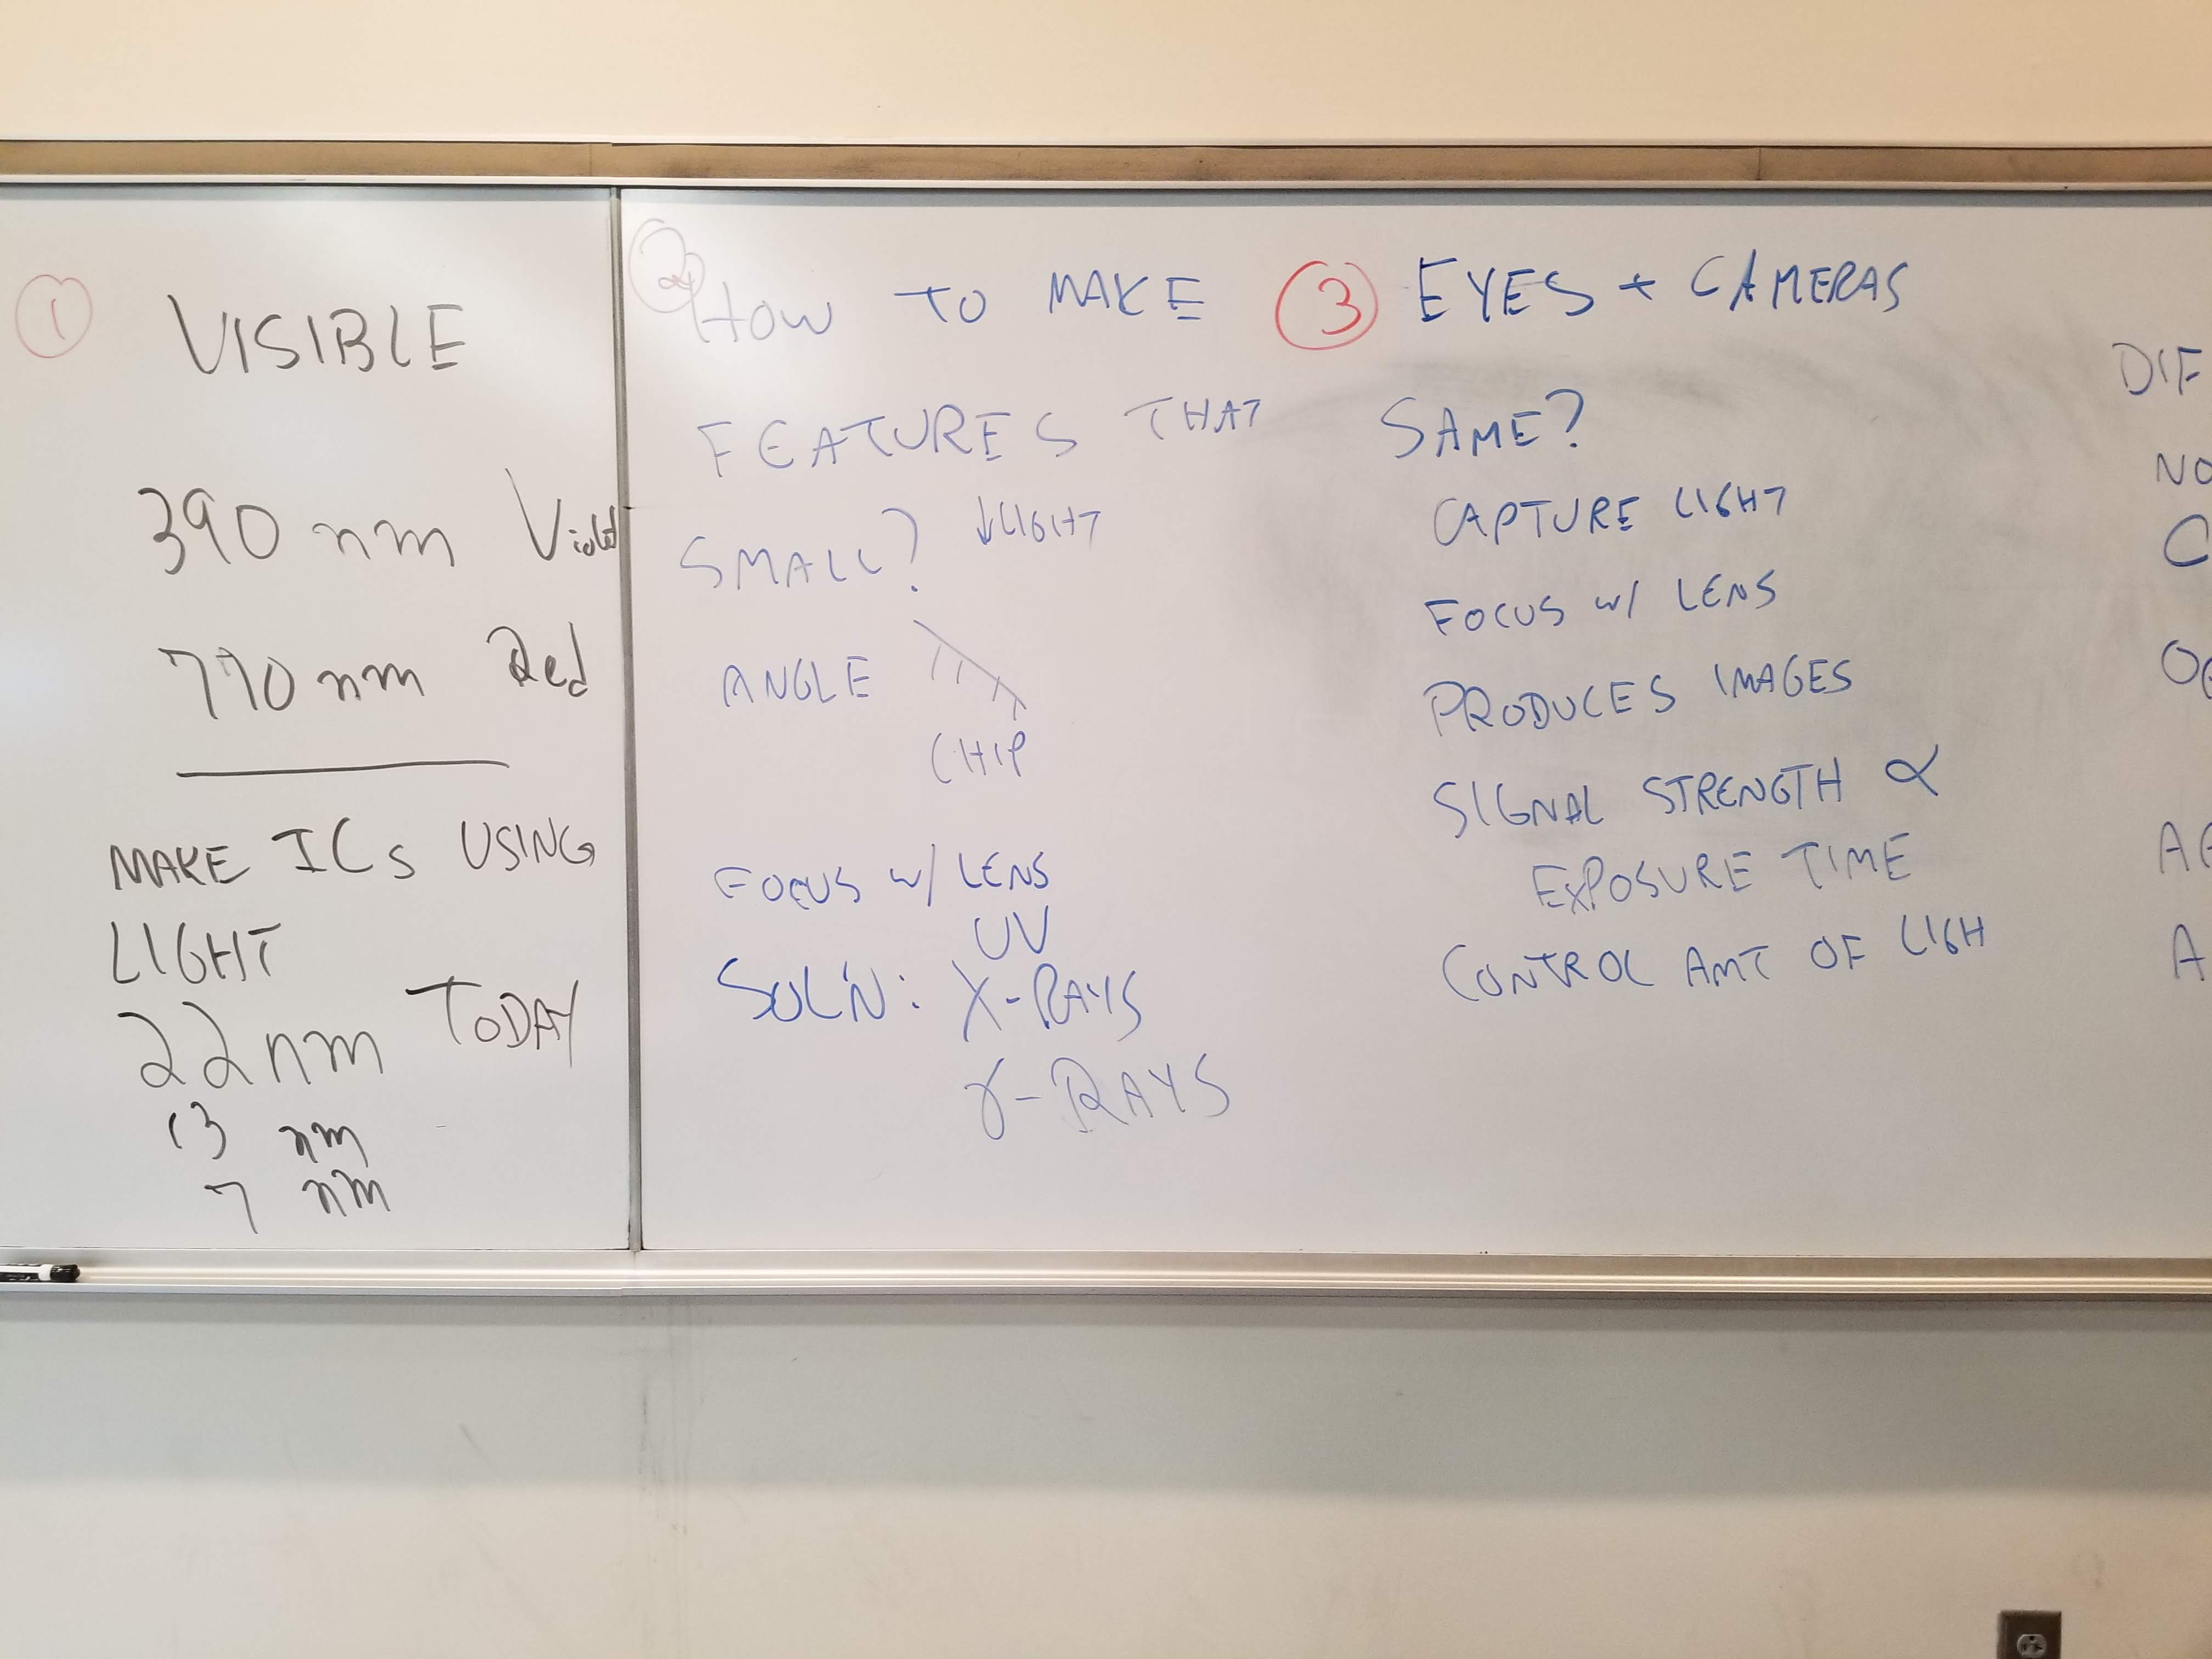 1
VISIBLE
390 nm Violet
770 nm Red
MAKE ICs USING
LIGHT
22 nm TODAY
13 nm
7 nm
2
HOW TO MAKE
FEATURES THAT
SMALL? ↓LIGHT
ANGLE
CHIP
FOCUS w/ LENS
UV
SOL'N: X-RAYS
γ-RAYS
3 EYES + CAMERAS
SAME?
CAPTURE LIGHT
FOCUS w/ LENS
PRODUCES IMAGES
SIGNAL STRENGTH ∝
EXPOSURE TIME
CONTROL AMT OF LIGH
DIF
NO
C
A